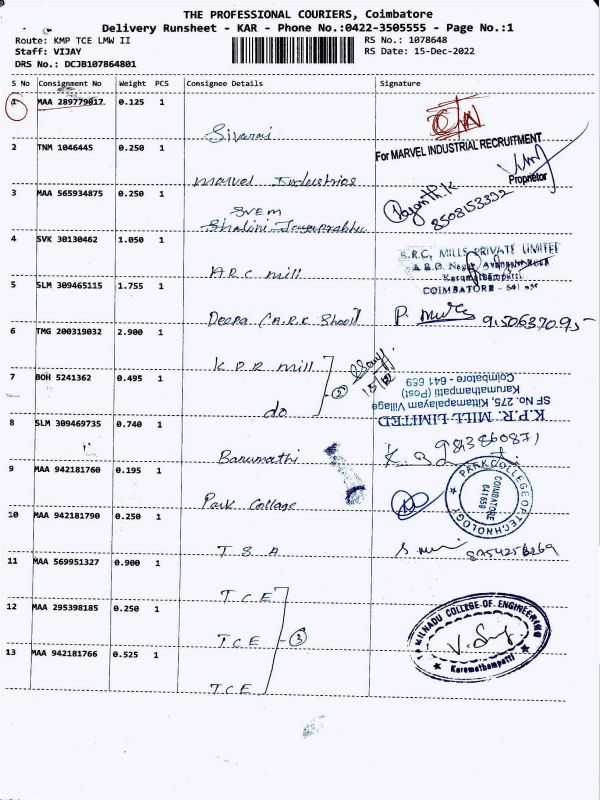 THE PROFESSIONAL COURIERS, Coimbatore
Delivery Runsheet - KAR - Phone No.:0422-3505555 - Page No.:1
Route: KMP TCE LMW II RS No.: 1078648
Staff: VIJAY RS Date: 15-Dec-2022
DRS No.: DCJB107864801
S No Consignment No Weight PCS Consignee Details Signature
1 MAA 289779017 0.125 1
Sivaraj
2 TNM 1046445 0.250 1 For MARVEL INDUSTRIAL RECRUITMENT
Proprietor
Marvel Industries
3 MAA 565934875 0.250 1 Jayanth.K
SVEM 8508153332
Shalini
4 SVK 30130462 1.050 1 MILLS PRIVATE LIMITED
Karumathampatti
A.R.C mill COIMBATORE - 641
5 SLM 309465115 1.755 1
Deepa
6 TMG 200319032 2.900 1
K.P.R mill
7 BOH 5241362 0.495 1 2
do
K.P.R. MILL LIMITED
SF No. 275, Kittampalayam Village
Karumathampatti (Post)
Coimbatore - 641 659
8 SLM 309469735 0.740 1
Banumathi
9 MAA 942181760 0.195 1
Park Collage
PARK COLLEGE OF TECHNOLOGY
COIMBATORE
641 659
10 MAA 942181790 0.250 1
T S A
11 MAA 569951327 0.900 1
T.C.E
12 MAA 295398185 0.250 1
T.C.E 3
TAMILNADU COLLEGE OF ENGINEERING
Karumathampatti
13 MAA 942181766 0.525 1
T.C.E